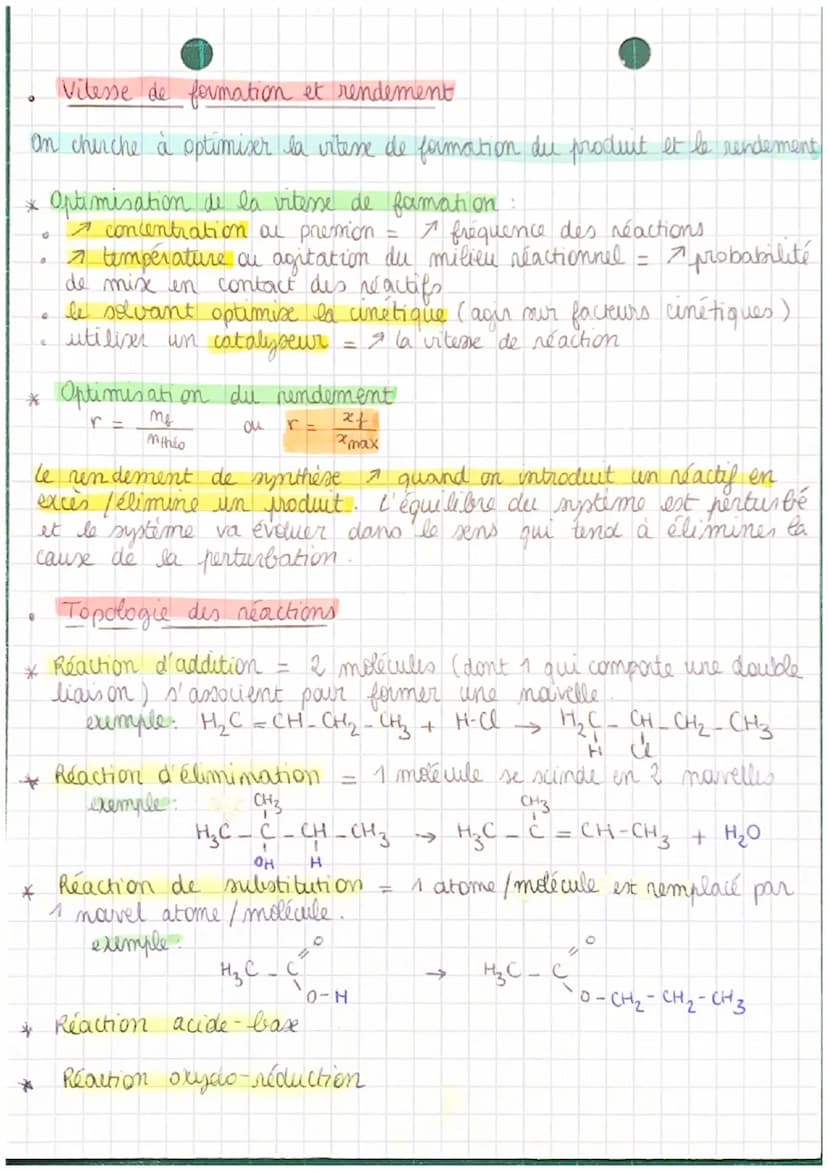 • Vitesse de formation et rendement
On cherche à optimiser la vitesse de formation du produit et le rendement
* Optimisation de la vitesse de formation :
• ↗ concentration ou pression = ↗ fréquence des réactions
• ↗ température ou agitation du milieu réactionnel = ↗ probabilité
de mise en contact des réactifs
• le solvant optimise la cinétique (agir sur facteurs cinétiques)
• utiliser un catalyseur = ↗ la vitesse de réaction
* Optimisation du rendement
r = mf / mthéo ou r = xf / xmax
Le rendement de synthèse ↗ quand on introduit un réactif en
excès / élimine un produit. L'équilibre du système est perturbé
et le système va évoluer dans le sens qui tend à éliminer la
cause de la perturbation.
• Topologie des réactions
* Réaction d'addition = 2 molécules (dont 1 qui comporte une double
liaison) s'associent pour former une nouvelle.
exemple: H₂C = CH - CH₂ - CH₃ + H-Cl → H₂C - CH - CH₂ - CH₃
H Cl
* Réaction d'élimination = 1 molécule se scinde en 2 nouvelles
exemple: CH₃ CH₃
H₃C - C - CH - CH₃ → H₃C - C = CH-CH₃ + H₂O
OH H
* Réaction de substitution = 1 atome/molécule est remplacé par
1 nouvel atome/molécule.
exemple: O O
H₃C - C → H₃C - C
O-H O-CH₂-CH₂-CH₃
* Réaction acide-base
* Réaction oxydo-réduction